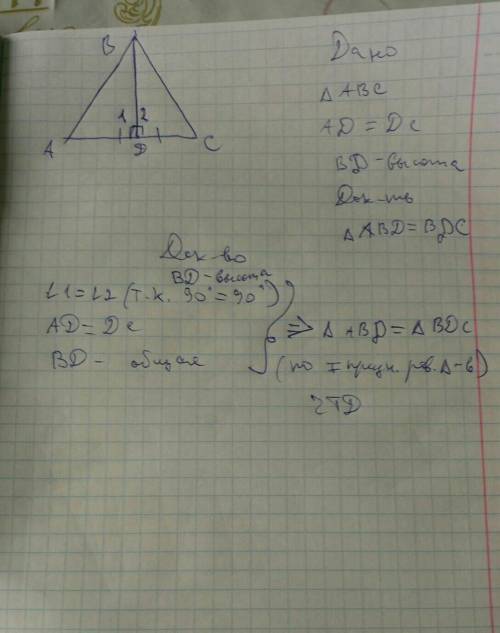 B
1 2
A
D
C
Дано
Δ ABC
AD = DC
BD - высота
Док-ть
Δ ABD = BDC
Док-во
BD - высота
∠1 = ∠2 (т.к. 90° = 90°)
AD = DC
BD - общая
⇒ Δ ABD = Δ BDC
(по I призн. рав. Δ-в)
ЧТД